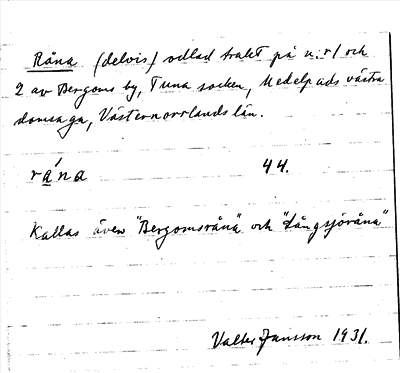 Råna (delvis) odlad trakt på n:r 1 och
2 av Bergoms by, Tuna socken, Medelpads västra
domsaga, Västernorrlands län.
råna 44.
Kallas även "Bergomsråna" och "Långsjöråna"
Valter Jansson 1931.